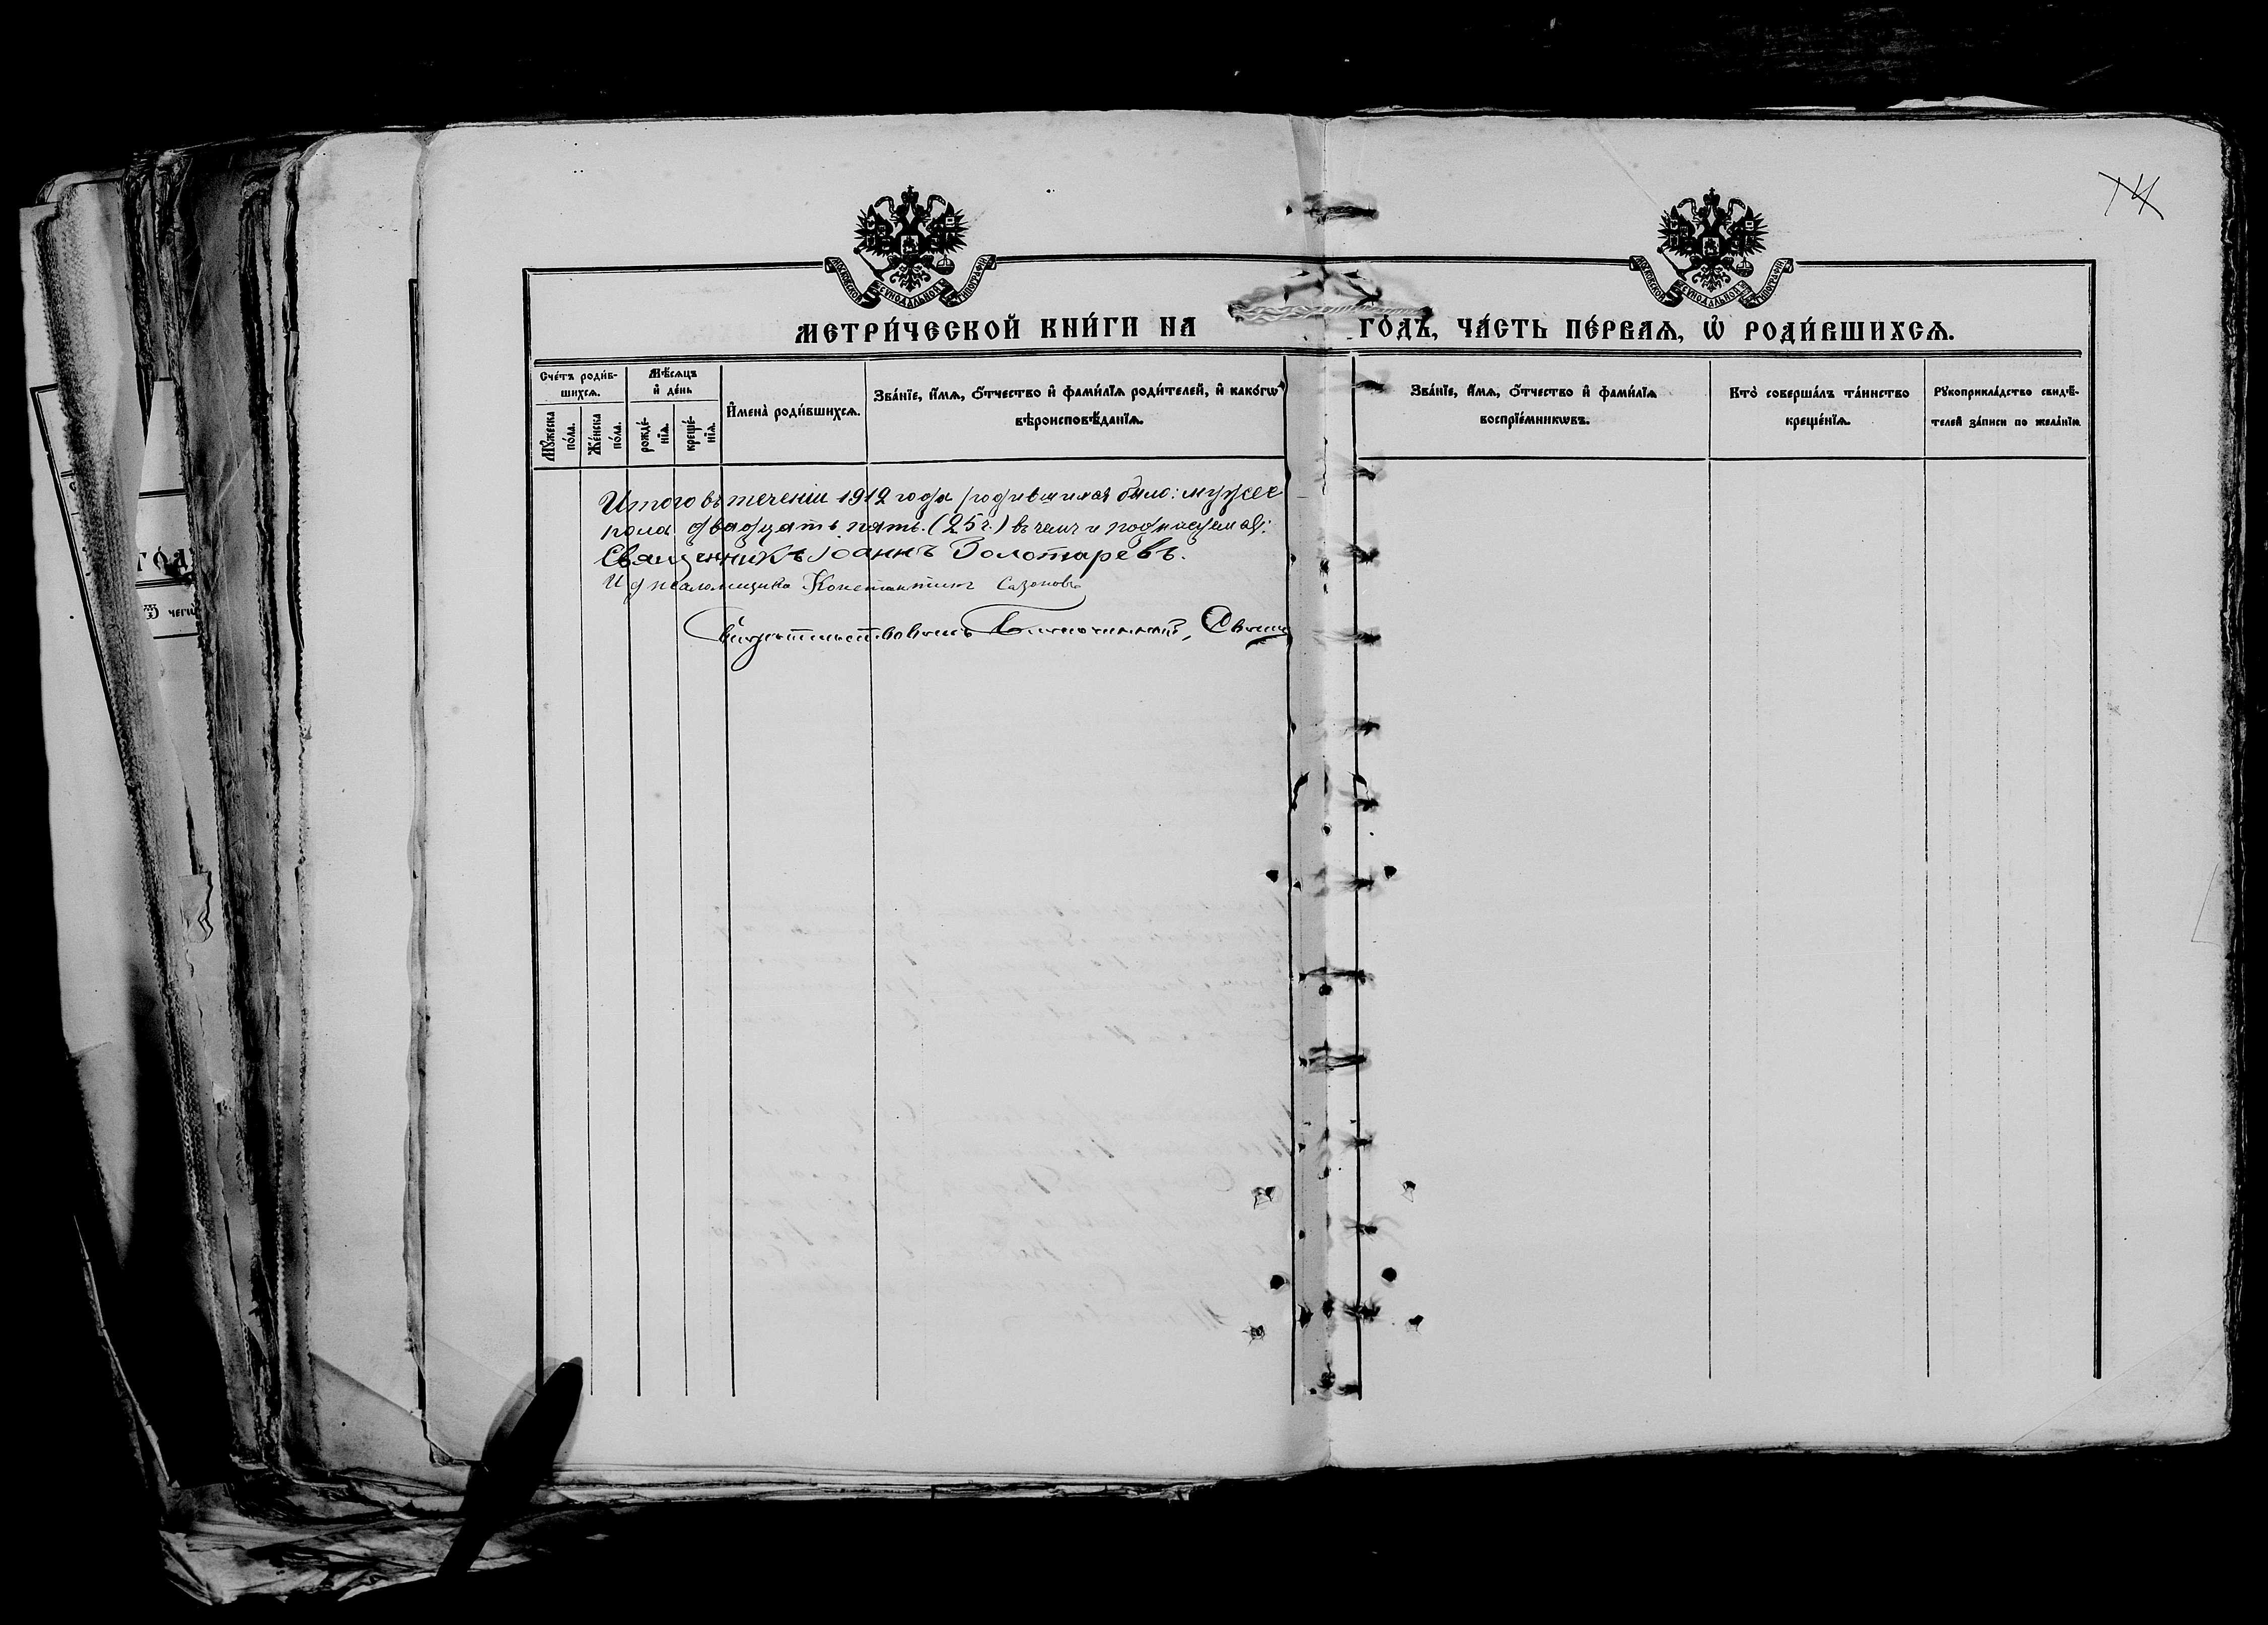 14
МОСКОВСКОЙ СѴНОДАЛЬНОЙ ТИПОГРАФІИ
МОСКОВСКОЙ СѴНОДАЛЬНОЙ ТИПОГРАФІИ
МЕТРИ́ЧЕСКОЙ КНИ́ГИ НА ГО́ДЪ, ЧА́СТЬ ПЕ́РВАѦ, Ѡ҆ РОДИ́ВШИХСѦ.
Сче́тъ роди́в-
шихсѧ.
Мꙋ́жеска по́ла.
Же́нска по́ла.
Мѣ́сѧцъ
и҆ де́нь
рожде́-
нїѧ.
креще́-
нїѧ.
И҆мена̀ роди́вшихсѧ.
Зва́нїе, и҆́мѧ, ѻ҆́тчество и҆ фами́лїѧ роди́телей, и҆ како́гѡ
вѣроисповѣ́данїѧ.
Зва́нїе, и҆́мѧ, ѻ҆́тчество и҆ фами́лїѧ
воспрїе́мникѡвъ.
Кто̀ соверша́лъ та́инство
креще́нїѧ.
Рꙋкоприкла́дство свидѣ́-
телей за́писи по жела́нїю.
Итого въ теченіи 1912 года родившихся было: мужес
пола двадцать пять. (25 ч.) въ чемъ и подписуемся:
Священникъ Іоаннъ Золотаревъ.
И д псаломщика Константинъ Сазоновъ
Свидетельствовалъ Благочинный, Свящ
ГО́Д
Ѿ чегѡ